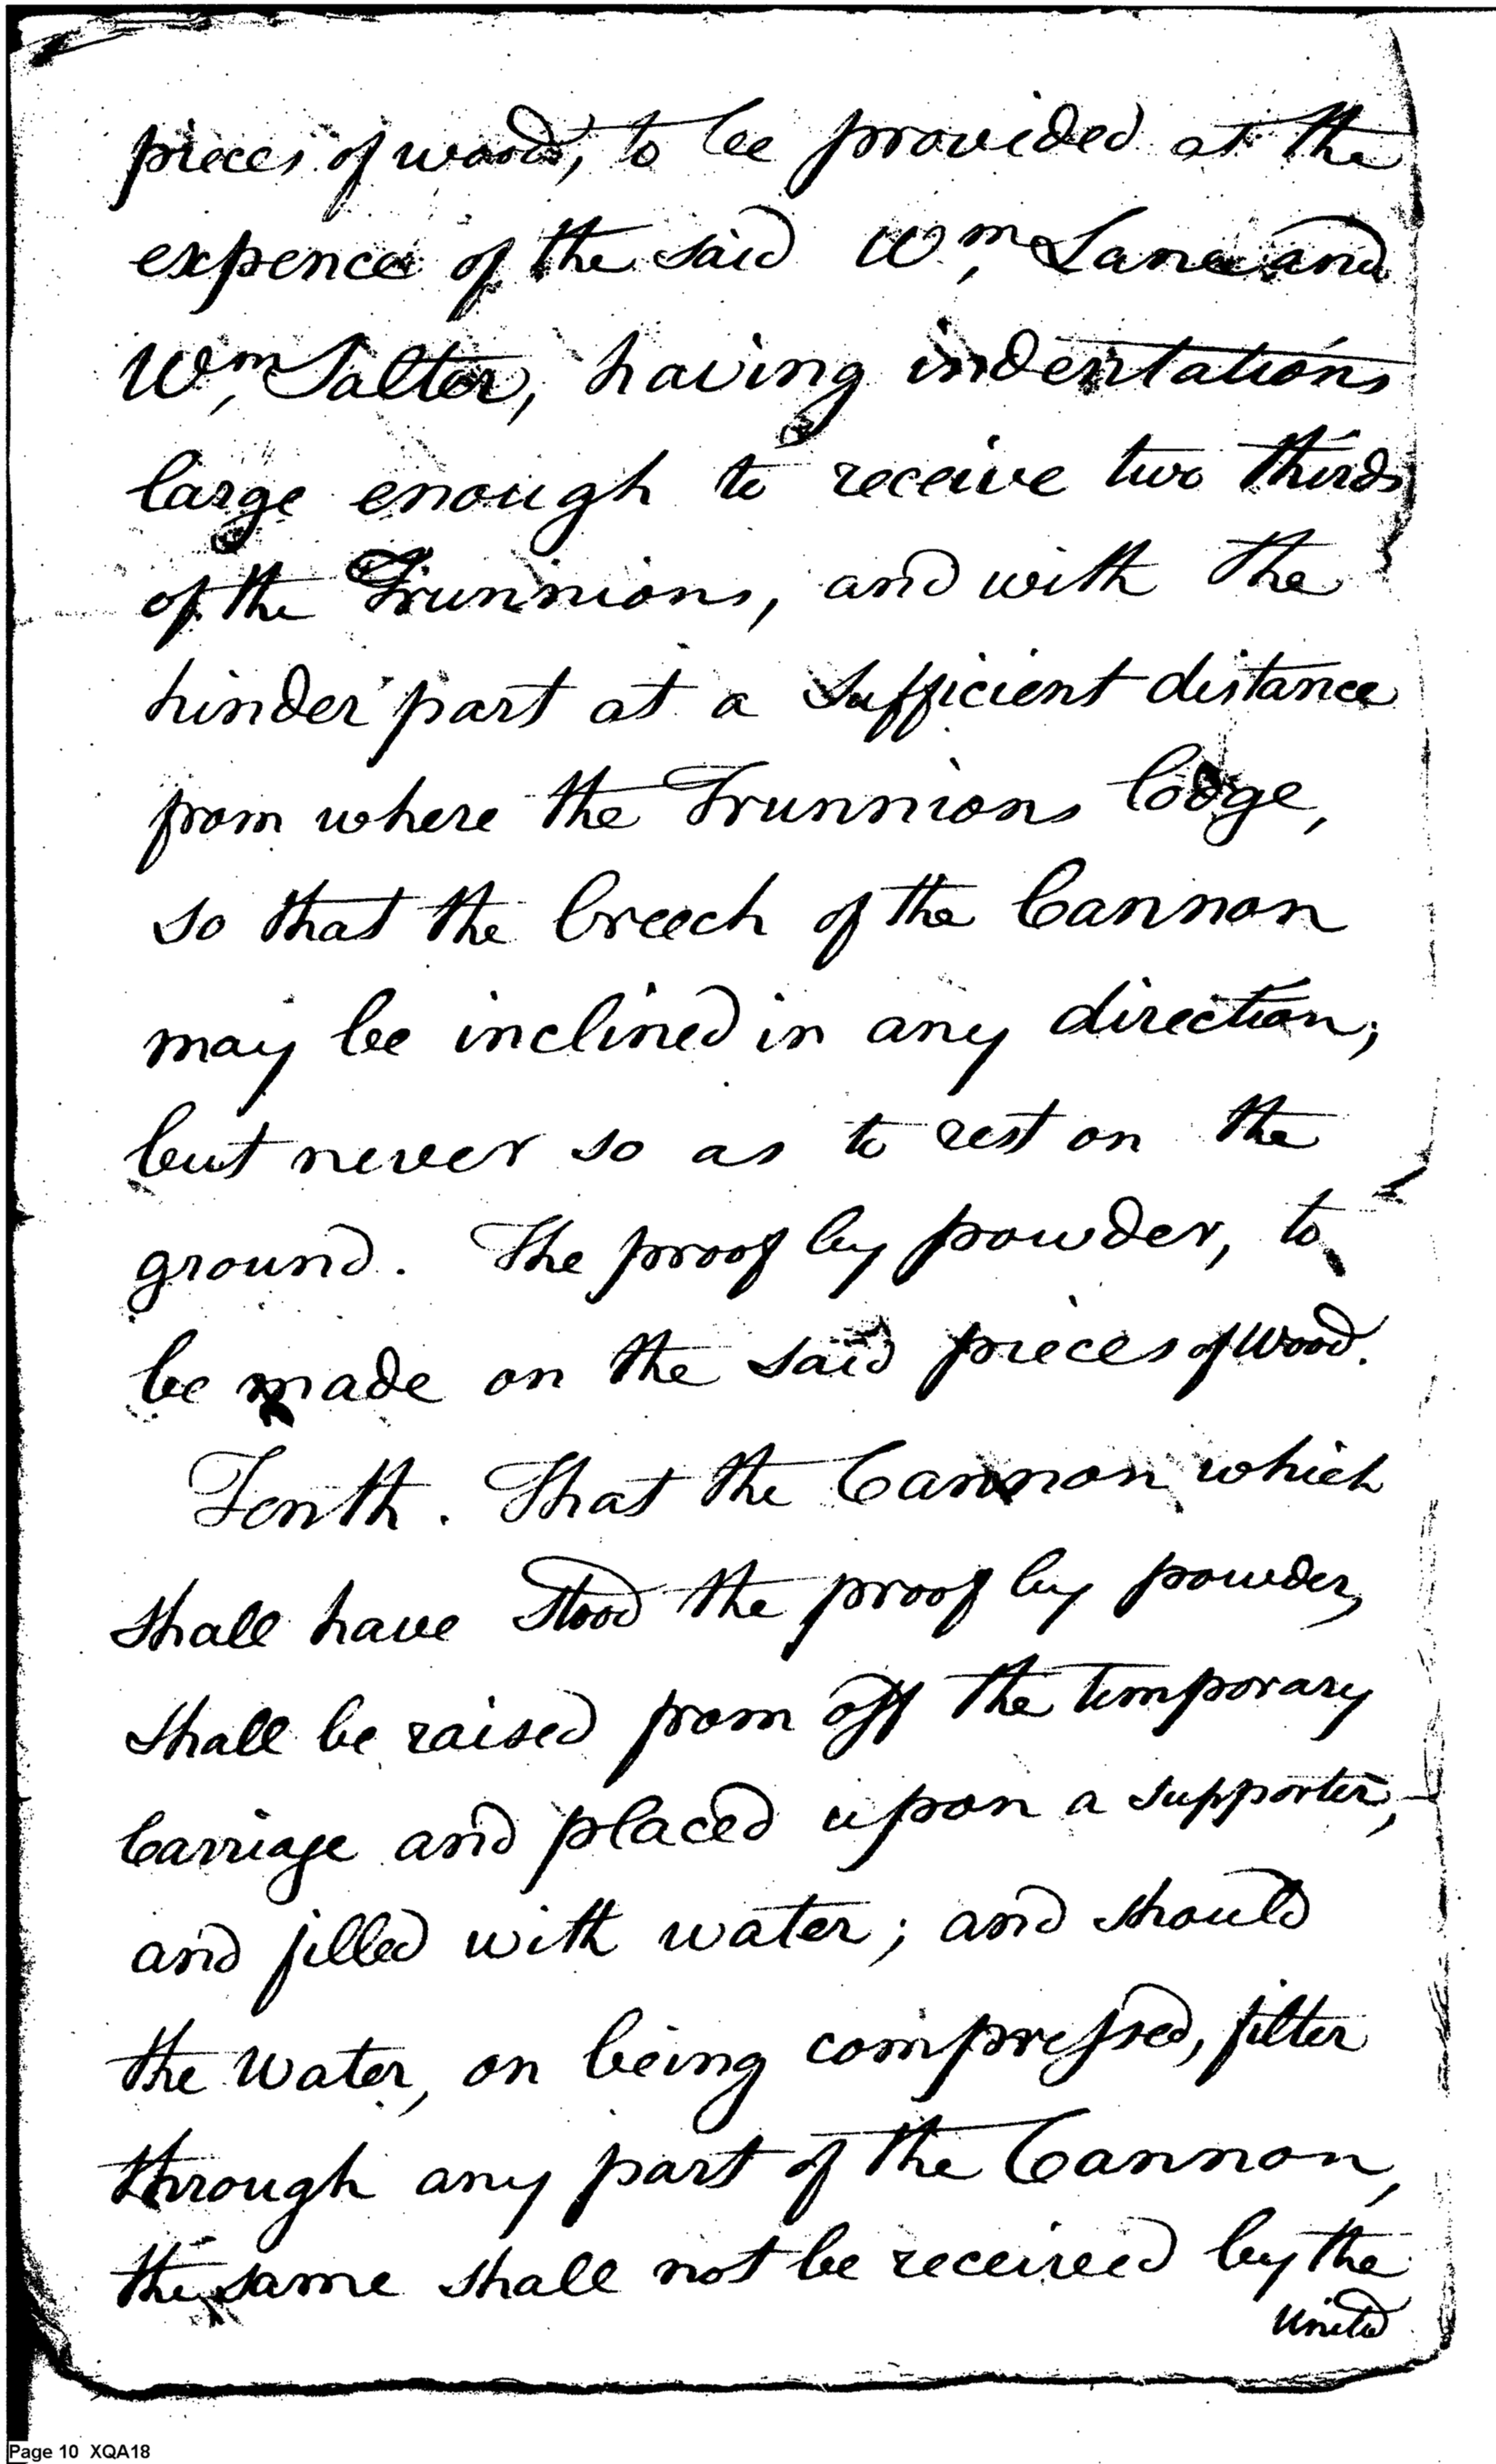 pieces of wood, to be provided at the
expence of the said Wm. Lane and
Wm. Salter, having indentations
large enough to receive two thirds
of the Trunnions, and with the
hinder part at a sufficient distance
from where the Trunnions lodge,
so that the breech of the Cannon
may be inclined in any direction;
but never so as to rest on the
ground. The proof by powder, to
be made on the said pieces of Wood.
Tenth. That the Cannon which
shall have stood the proof by powder,
shall be raised from off the temporary
Carriage and placed upon a supporter,
and filled with water; and should
the Water, on being compressed, filter
through any part of the Cannon,
the same shall not be received by the
United
Page 10 XQA18